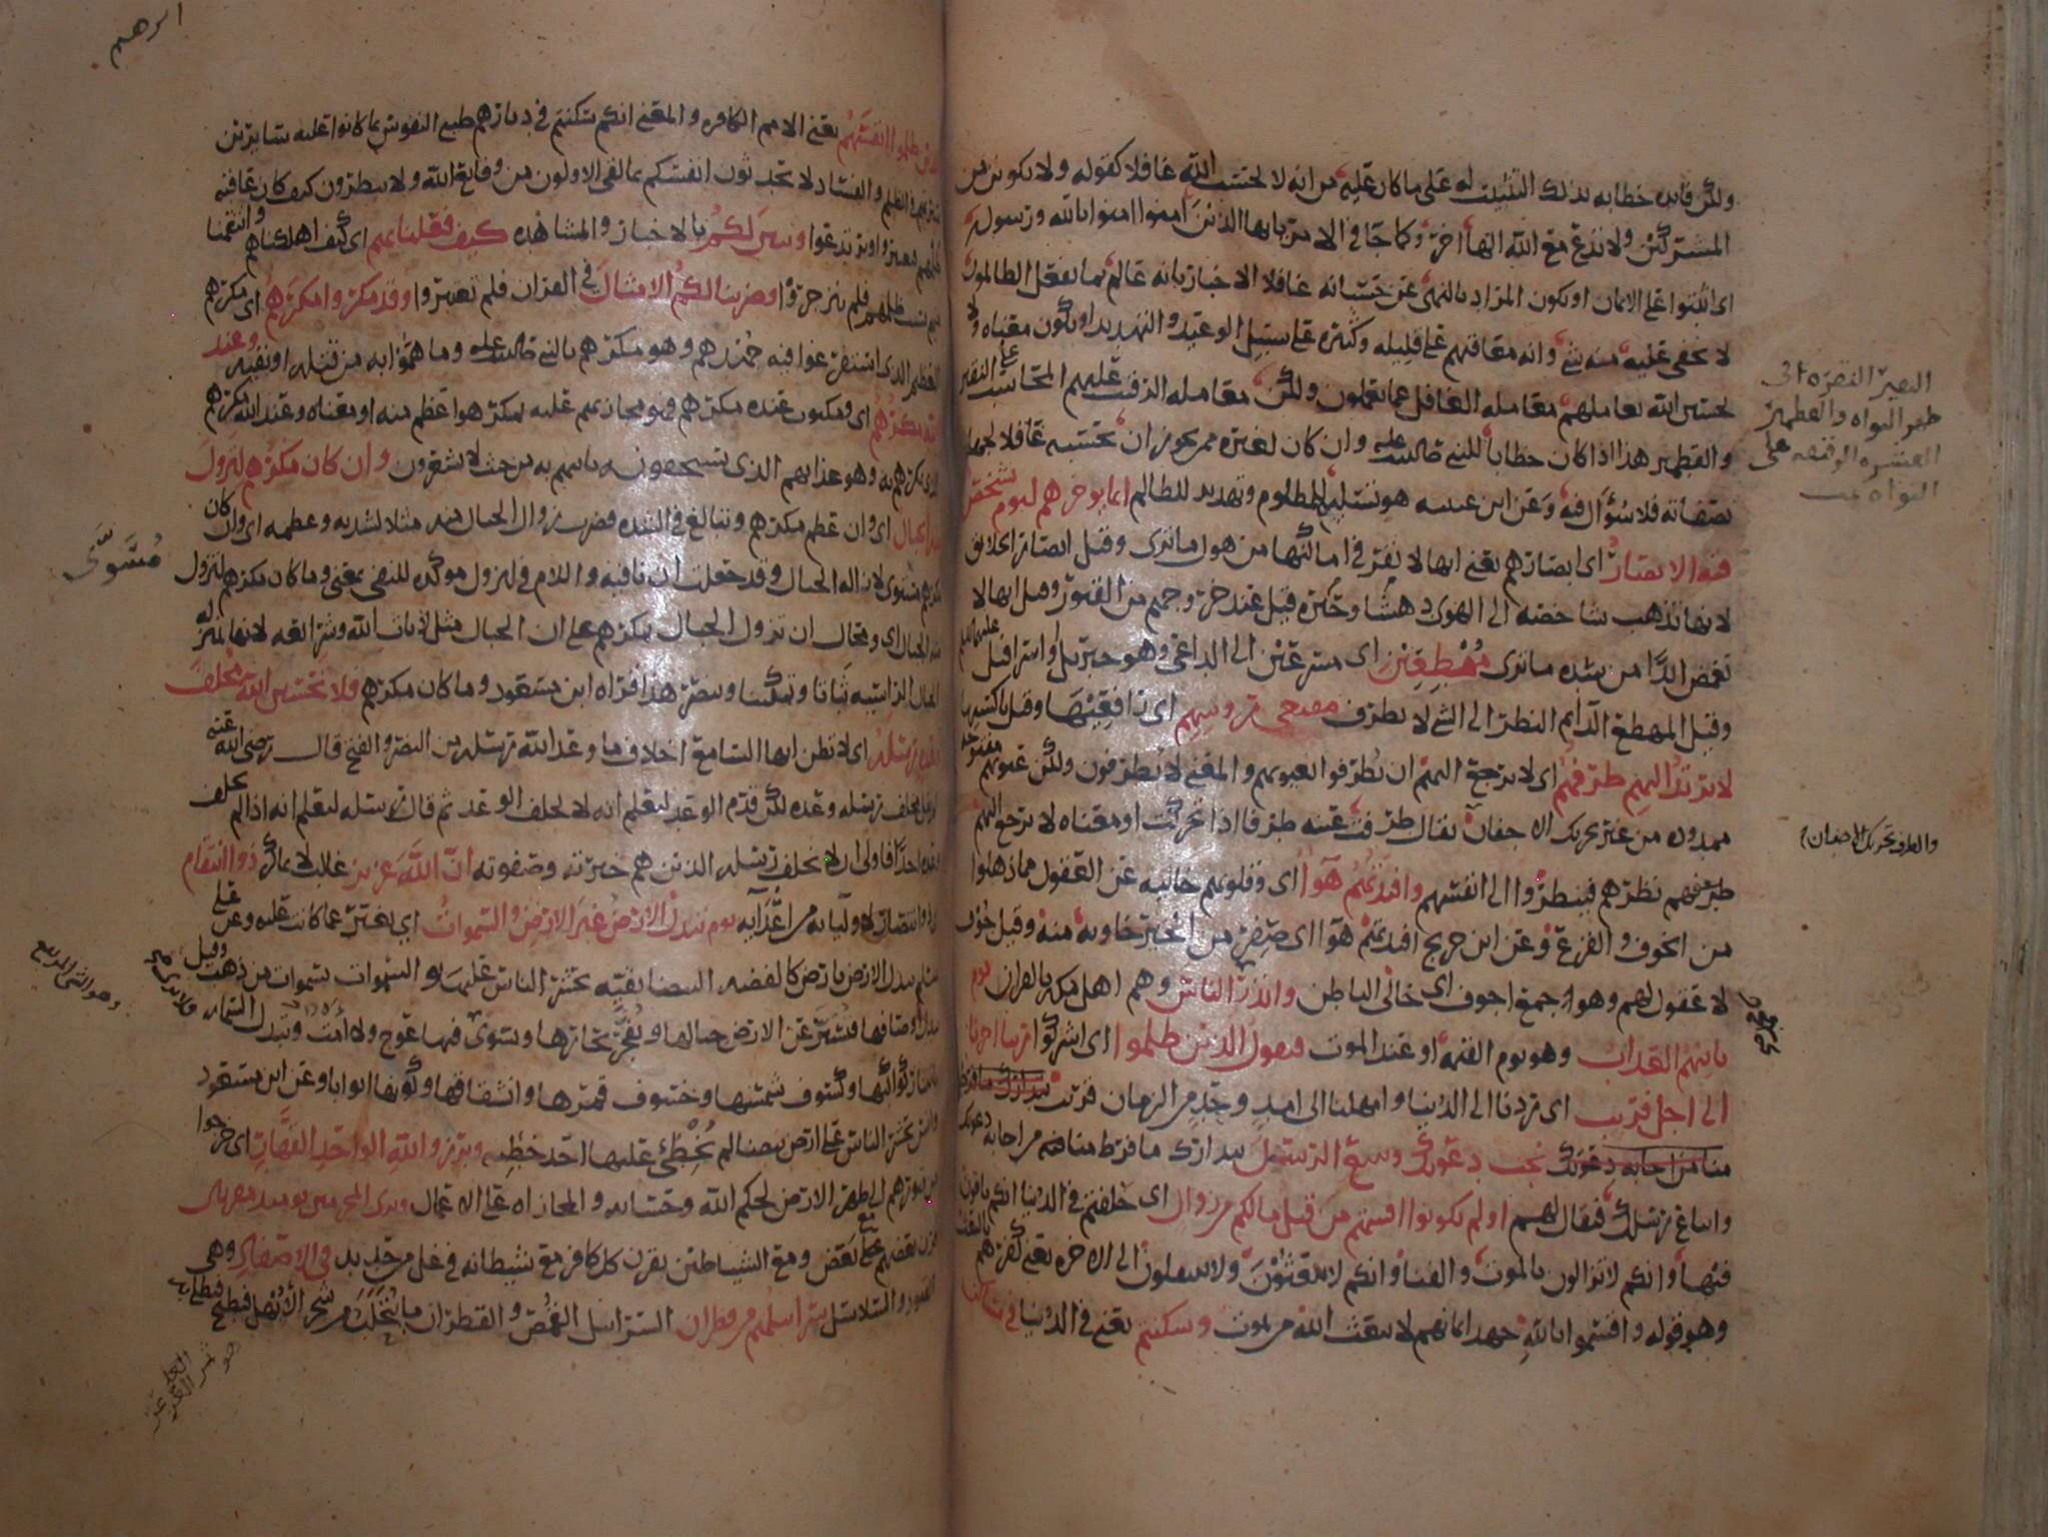 ولكن فايده خطابه بذلك التثبيت له على ما كان عليه من انه لا يحسب الله غافلا كقوله ولا تكونن من
المشركين ولا تدع مع الله الها اخر وكما جا في الامر يايها الذين امنوا امنوا بالله ورسوله
اى اثبتوا على الايمان او يكون المراد بالنهى عن حسبانه غافلا الاخبار بانه عالم بما يفعل الظالمون
لا يخفى عليه منه شى وانه معاقبهم على قليله وكثيره على سبيل الوعيد والتهديد او يكون معناه ولا
تحسبن الله يعاملهم معامله الغافل عما يعملون ولكن معامله الرقيب عليهم المحاسب على النقير
والقطمير هذا اذا كان خطابا للنبى صلى الله عليه وان كان لغيره ممن يجوز ان يحسبه غافلا لجهله
بصفاته فلا سؤال فيه وعن ابن عيينه هو تسليه للمظلوم وتهديد للظالم انما يوخرهم ليوم تشخص
فيه الابصار اى ابصارهم يعنى انها لا تقر في اماكنها من هول ما ترى وقيل ابصار الخلايق
لانها تذهب شاخصه الى الهوى دهشا وحيره قيل عند خروجهم من القبور وقيل انها لا
تغمض ابدا من شده ما ترى مهطعين اى مسرعين الى الداعى وهو جبريل واسرافيل عليهما السلم
وقيل المهطع الدايم النظر الى الشى لا يطرف مقنعى روسهم اى رافعيها وقيل ناكسيها
لا يرتد اليهم طرفهم اى لا يرجع اليهم ان يطرفوا بعيونهم والمعنى لا يطرفون ولكن عيونهم مفتوحه
ممدوده من غير تحريك الاجفان يقال طرفت عينه طرفا اذا تحركت او معناه لا يرجع اليهم
طرفهم نظرهم فينظروا الى انفسهم وافئدتهم هوآ اى وقلوبهم خاليه عن العقول مما ذهلوا
من الخوف والفزع وعن ابن جريج افئدتهم هوآ اى صفر من الخير خاويه منه وقيل جوف
لا عقول لهم وهوا جمع اجوف اى خالى الباطن وانذر الناس وهم اهل مكه بالقران يوم
ياتيهم العذاب وهو يوم القيمه او عند الموت فيقول الذين ظلموا اى اشركوا ربنا اخرنا
الى اجل قريب اى ردنا الى الدنيا وامهلنا الى امد وحد من الزمان قريب نتدارك ما فرط
منا من اجابه دعوتك نجب دعوتك ونتبع الرسل نتدارك ما فرطنا فيه من اجابه دعوتك
واتباع رسلك فيقال لهم اولم تكونوا اقسمتم من قبل ما لكم من زوال اى حلفتم في الدنيا انكم باقون
فيها وانكم لا تزالون بالموت والفنا وانكم لا تبعثون ولا تنتقلون الى الاخره يعنى كفرهم بالبعث
وهو قوله واقسموا بالله جهد ايمانهم لا يبعث الله من يموت وسكنتم يعنى في الدنيا في مساكن
والطرف تحريك الاجفان
ابرهيم
الذين ظلموا انفسهم يعنى الامم الكافره والمعنى انكم سكنتم في ديارهم طيبى النفوس بما كانوا عليه سايرين
سيرتهم في الظلم والفساد لا تحدثون انفسكم بما لقى الاولون من وقايع الله ولا ينظرون كيف كان عاقبه
ظلمهم فيعتبروا ويرتدعوا وتبين لكم بالاخبار والمشاهده كيف فعلنا بهم اى كيف اهلكناهم وانتقمنا
منهم بسبب ظلمهم فلم ينزجروا وضربنا لكم الامثال في القران فلم تعتبروا وقد مكروا مكرهم اى مكرهم
العظيم الذى استفرغوا فيه جهدهم وهو مكرهم بالنبى صلى الله عليه وما هموا به من قتله او نفيه وعند
الله مكرهم اى ومكتوب عنده مكرهم فهو مجازيهم عليه بمكر هو اعظم منه او معناه وعند الله مكرهم
الذى يمكرهم به وهو عذابهم الذى يستحقونه ياتيهم به من حيث لا يشعرون وان كان مكرهم لتزول
منه الجبال اى وان عظم مكرهم وتبالغ في الشده فضرب زوال الجبال منه مثلا لشدته وعظمه اى وان كان
مكرهم مسوى لازاله الجبال وقد جعلت ان نافيه واللام في لتزول موكده للنفى بمعنى وما كان مكرهم لتزول
منه الجبال اى ومحال ان تزول الجبال بمكرهم على ان الجبال مثل لايات الله وشرايعه لانها بمنزله
الجبال الراسيه ثباتا وتمكنا وينصر هذا قراه ابن مسعود وما كان مكرهم فلا تحسبن الله مخلف
وعده رسله اى لا تظن ايها السامع اخلاف ما وعد الله رسله من النصر والفتح قال رضى الله عنه
اولم يقل مخلف رسله وعده لكن قدم الوعد ليعلم انه لا يخلف الوعد ثم قال رسله ليعلم انه اذا لم يخلف
وعده احدا فاولى ان لا يخلف رسله الذين هم خيرته وصفوته ان الله عزيز غالب لا يماكر ذو انتقام
اى ذو انتصار لاوليايه من اعدايه يوم تبدل الارض غير الارض والسموات اى يغير عما كانت عليه وعن على
عليه السلم تبدل الارض بارض كالفضه البيضا نقيه يحشر الناس عليها والسموات بسموات من ذهب وقيل
تبدل اوصافها فتسير عن الارض جبالها ويفجر بحارها وتسوى فلا يرى فيها عوج ولا امت وتبدل السما
بانتثار كواكبها وكسوف شمسها وخسوف قمرها وانشقاقها وكونها ابوابا وعن ابن مسعود
وانس يحشر الناس على ارض بيضا لم يخطئ عليها احد خطيه وبرزوا لله الواحد القهار اى خرجوا
من قبورهم الى ظهر الارض لحكم الله وحسابه والمجازاه على الاعمال وترى المجرمين يوميذ مقرنين
قرن بعضهم مع بعض ومع الشياطين يقرن كل كافر مع شيطانه في غل من حديد في الاصفاد وهى
القيود والسلاسل سرابيلهم من قطران السرابيل القمص والقطران ما يتحلب من شجر الابهل فيطبخ فيطلى به
مسوى